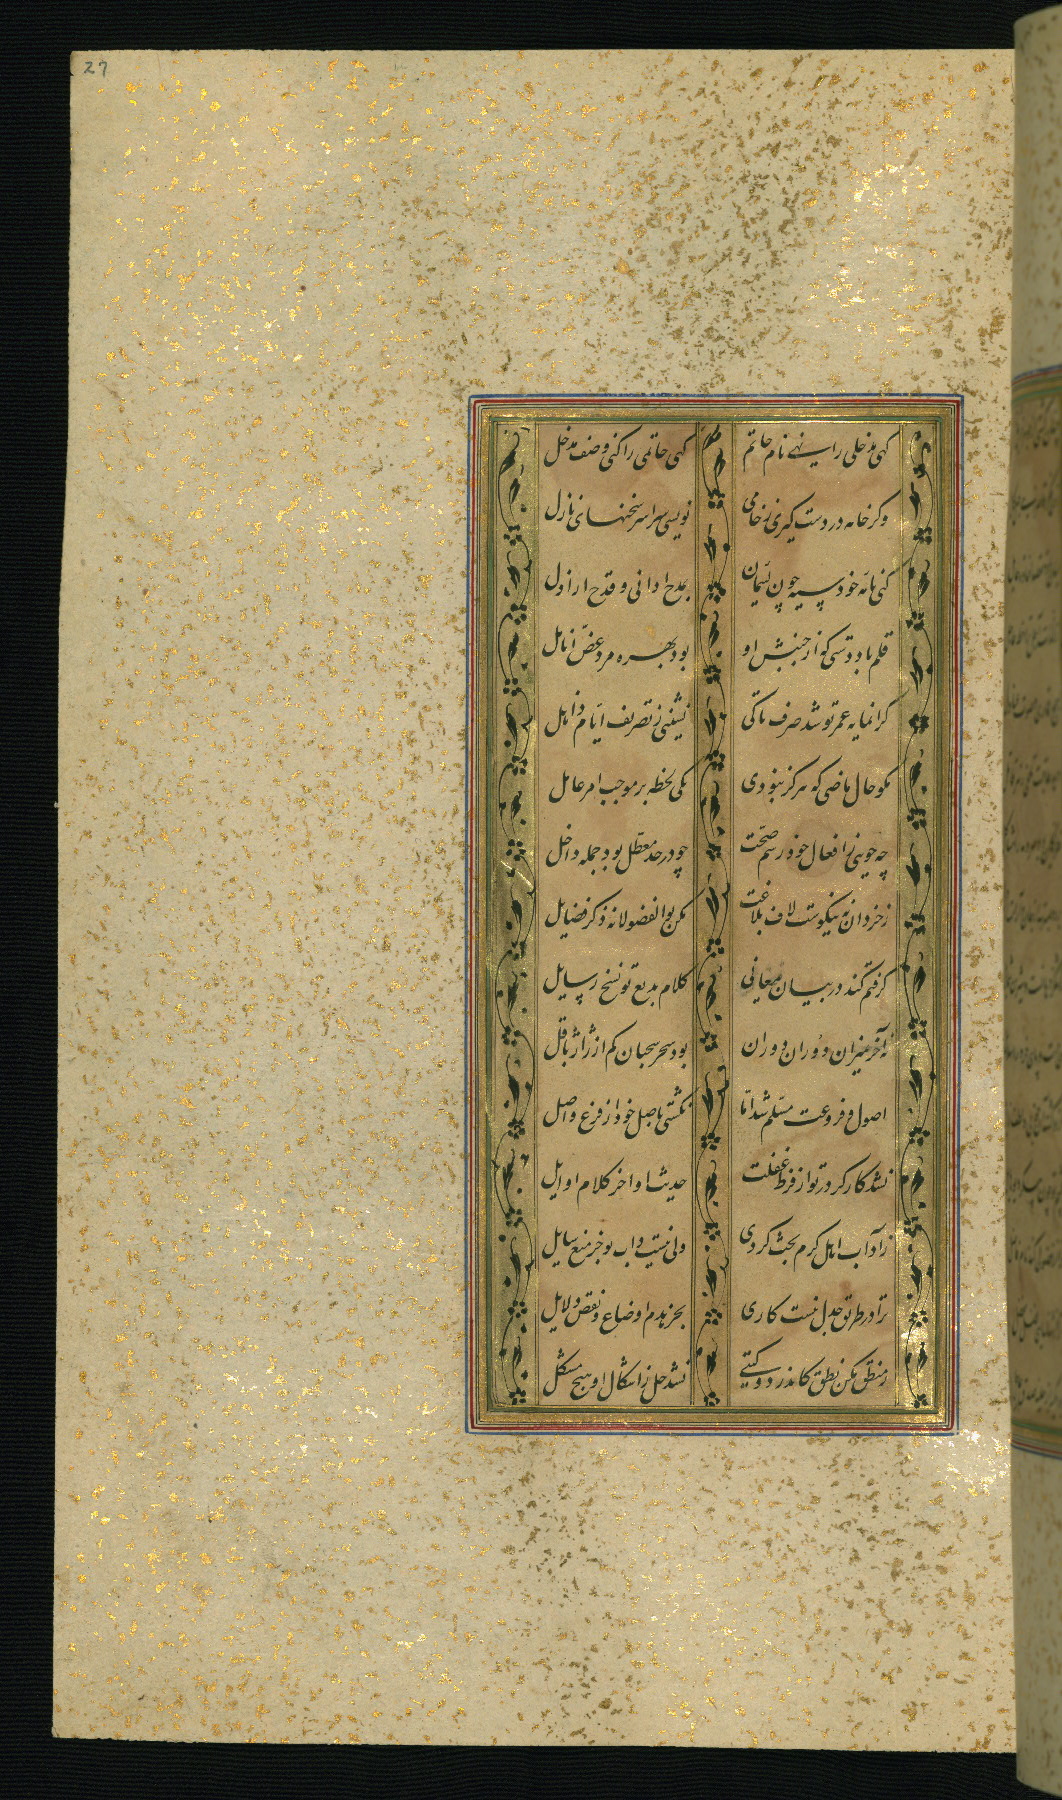 27
کهی مدخلی را نهی نام حاتم کهی حاتمی را کنی وصف مدخل
وکر خامه در دست کیری ز خامی نویسی سراسر سخنهای نازل
کنی نامه خود سیه چون لئیمان بمدح ادانی و قدح اراذل
قلم باد دستی که از جنبش او بود بهره مرد عض انامل
کرانمایه عمر تو شد صرف تا کی نشینی ز تصریف ایام ذاهل
مکو حال ماضی که هرکز نبودی یکی لحظه بر موجب امر عامل
چه جویی ز افعال خود رسم صحت چو در حد معتل بود جمله داخل
ز خردان نه نیکوست لاف بلاغت مکن بوالفضولانه ذکر فضایل
کرفتم کند در بیان معانی کلام بدیع تو نسخ رسایل
نه آخر بمیزان دوران دوران بود سحر سحبان کم از ژاژ باقل
اصول و فروعت مسلم شد اما نکشتی باصل خود از فرع واصل
نشد کارکر در تو از فرط غفلت حدیث اواخر کلام اوایل
ز آداب اهل کرم بحث کردی ولی نیست داب تو جز منع سایل
ترا در طریق جدل نیست کاری بجز هدم اوضاع و نقض دلایل
ز منطق مکن نطق کاندر دو کیتی نشد حل ز اشکال او هیچ مشکل